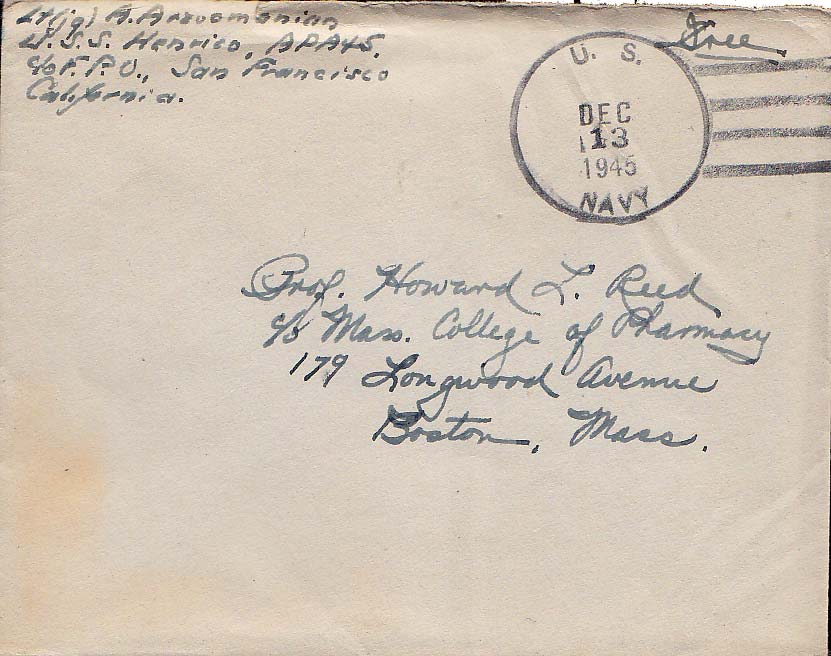 Lt(jg) A. Arzoomanian
U.S.S. Henrico, APA45,
c/o F.P.O., San Francisco
California.
Free
U. S.
DEC
13
1945
NAVY
Prof. Howard L. Reed
c/o Mass. College of Pharmacy
179 Longwood Avenue
Boston, Mass.